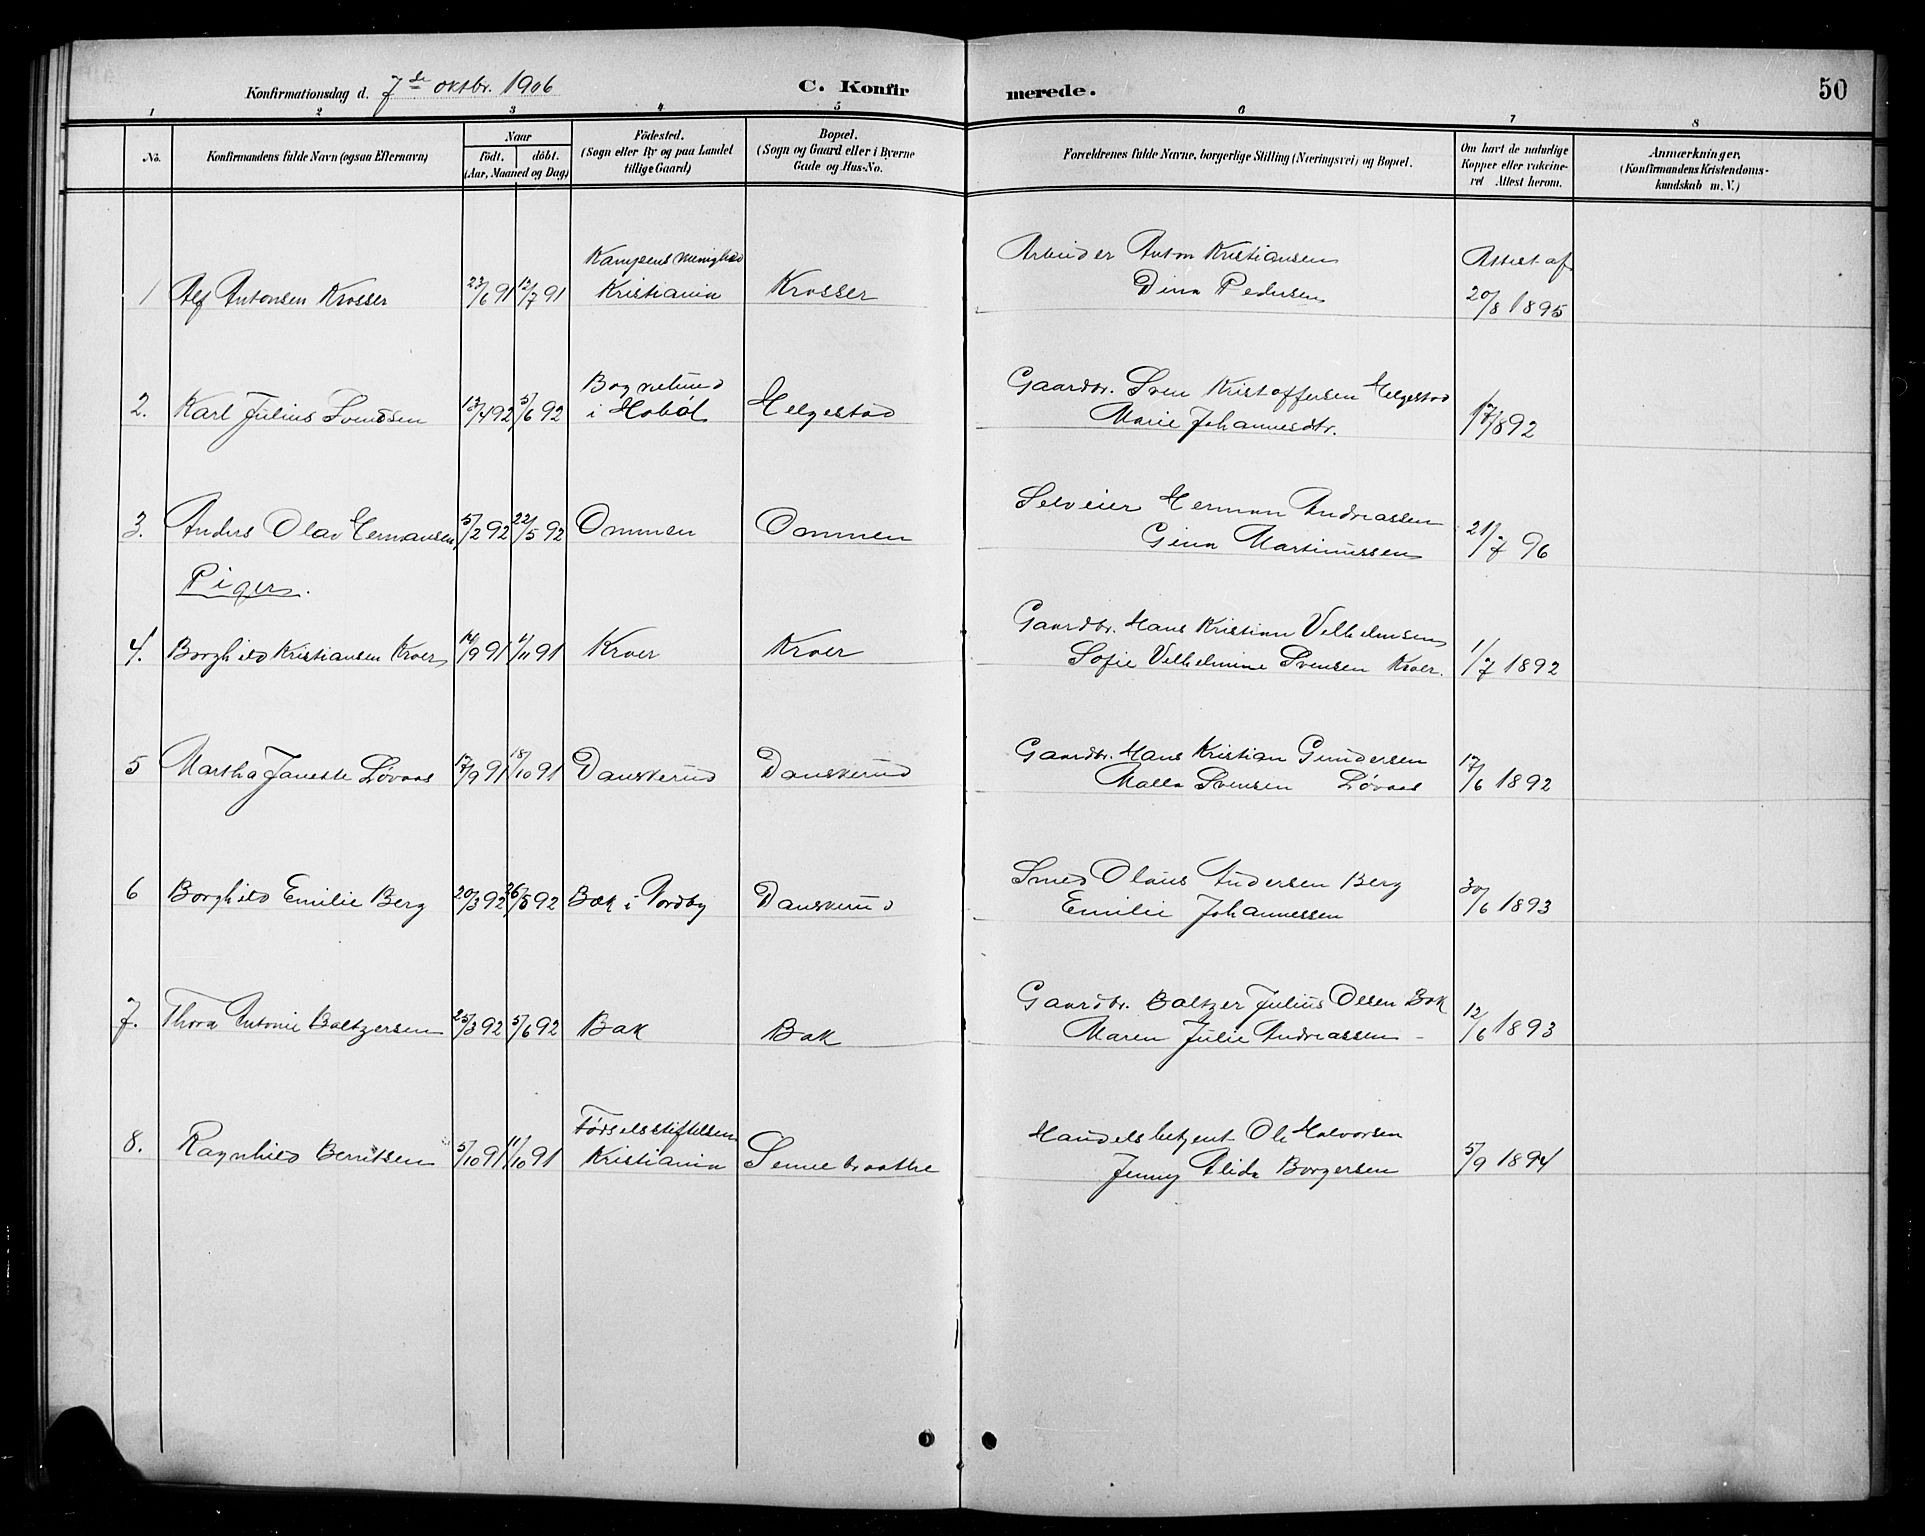 Konfirmationsdag d. 7de oktbr. 1906
C. Konfirmerede.
50
1 2 3 4 5 6 7 8
No.
Konfirmandens fulde Navn (ogsaa Efternavn)
Naar
födt. döbt.
(Aar, Maaned og Dag)
Födested.
(Sogn eller By og paa Landet
tillige Gaard)
Bopæl.
(Sogn og Gaard eller i Byerne
Gade og Hus-No.
Forældrenes fulde Navne, borgerlige Stilling (Næringsvei) og Bopæl.
Om havt de naturlige
Kopper eller vakcine-
ret Attest herom.
Anmærkninger.
(Konfirmandens Kristendoms-
kundskab m. V.)
Kampens menighed Arbeider Anton Kristiansen Attest af
1 Alf Antonsen Krosser 23/6 91 12/7 91 Kristiania Krosser Dina Pedersen 20/8 1895
Gaardbr. Sven Kristoffersen Helgestad
2. Karl Julius Svendsen 13/4 92 5/6 92 i Hobøl Helgestad Marie Johannesdtr. 17/892
Selveier Herman Andreassen
3. Anders Olav Hermansen 5/2 92 22/5 92 Ommen Ommen Gina Martinussen 21/7 96
Piger.
Gaardbr. Hans Kristian Vilhelmsen
4. Borghild Kristiansen Kroer 14/9 91 1/11 91 Kroer Kroer Sofie Vilhelmine Svensen Kroer. 1/7 1892
Gaardbr. Hans Kristian Gundersen
5 Martha Janette Løvaas 17/9 91 18/10 91 Danskerud Danskerud Malla Svensen Løvaas 17/6 1892
Smed Olaus Andersen Berg
6 Borghild Emilie Berg 20/3 92 26/5 92 Bak i Nordby Danskerud Emilie Johannessen 30/6 1893
Gaardbr. Baltzer Julius Olsen Bak
7. Thora Antonie Baltzersen 25/3 92 5/6 92 Bak Bak Maren Julie Andreassen 12/6 1893
Fødselsstiftelsen Handelsbetjent Ole Halvorsen
8. Ragnhild Berntsen 5/10 91 11/10 91 Kristiania Sennebraatte Jenny Alida Borgersen 5/9 1894